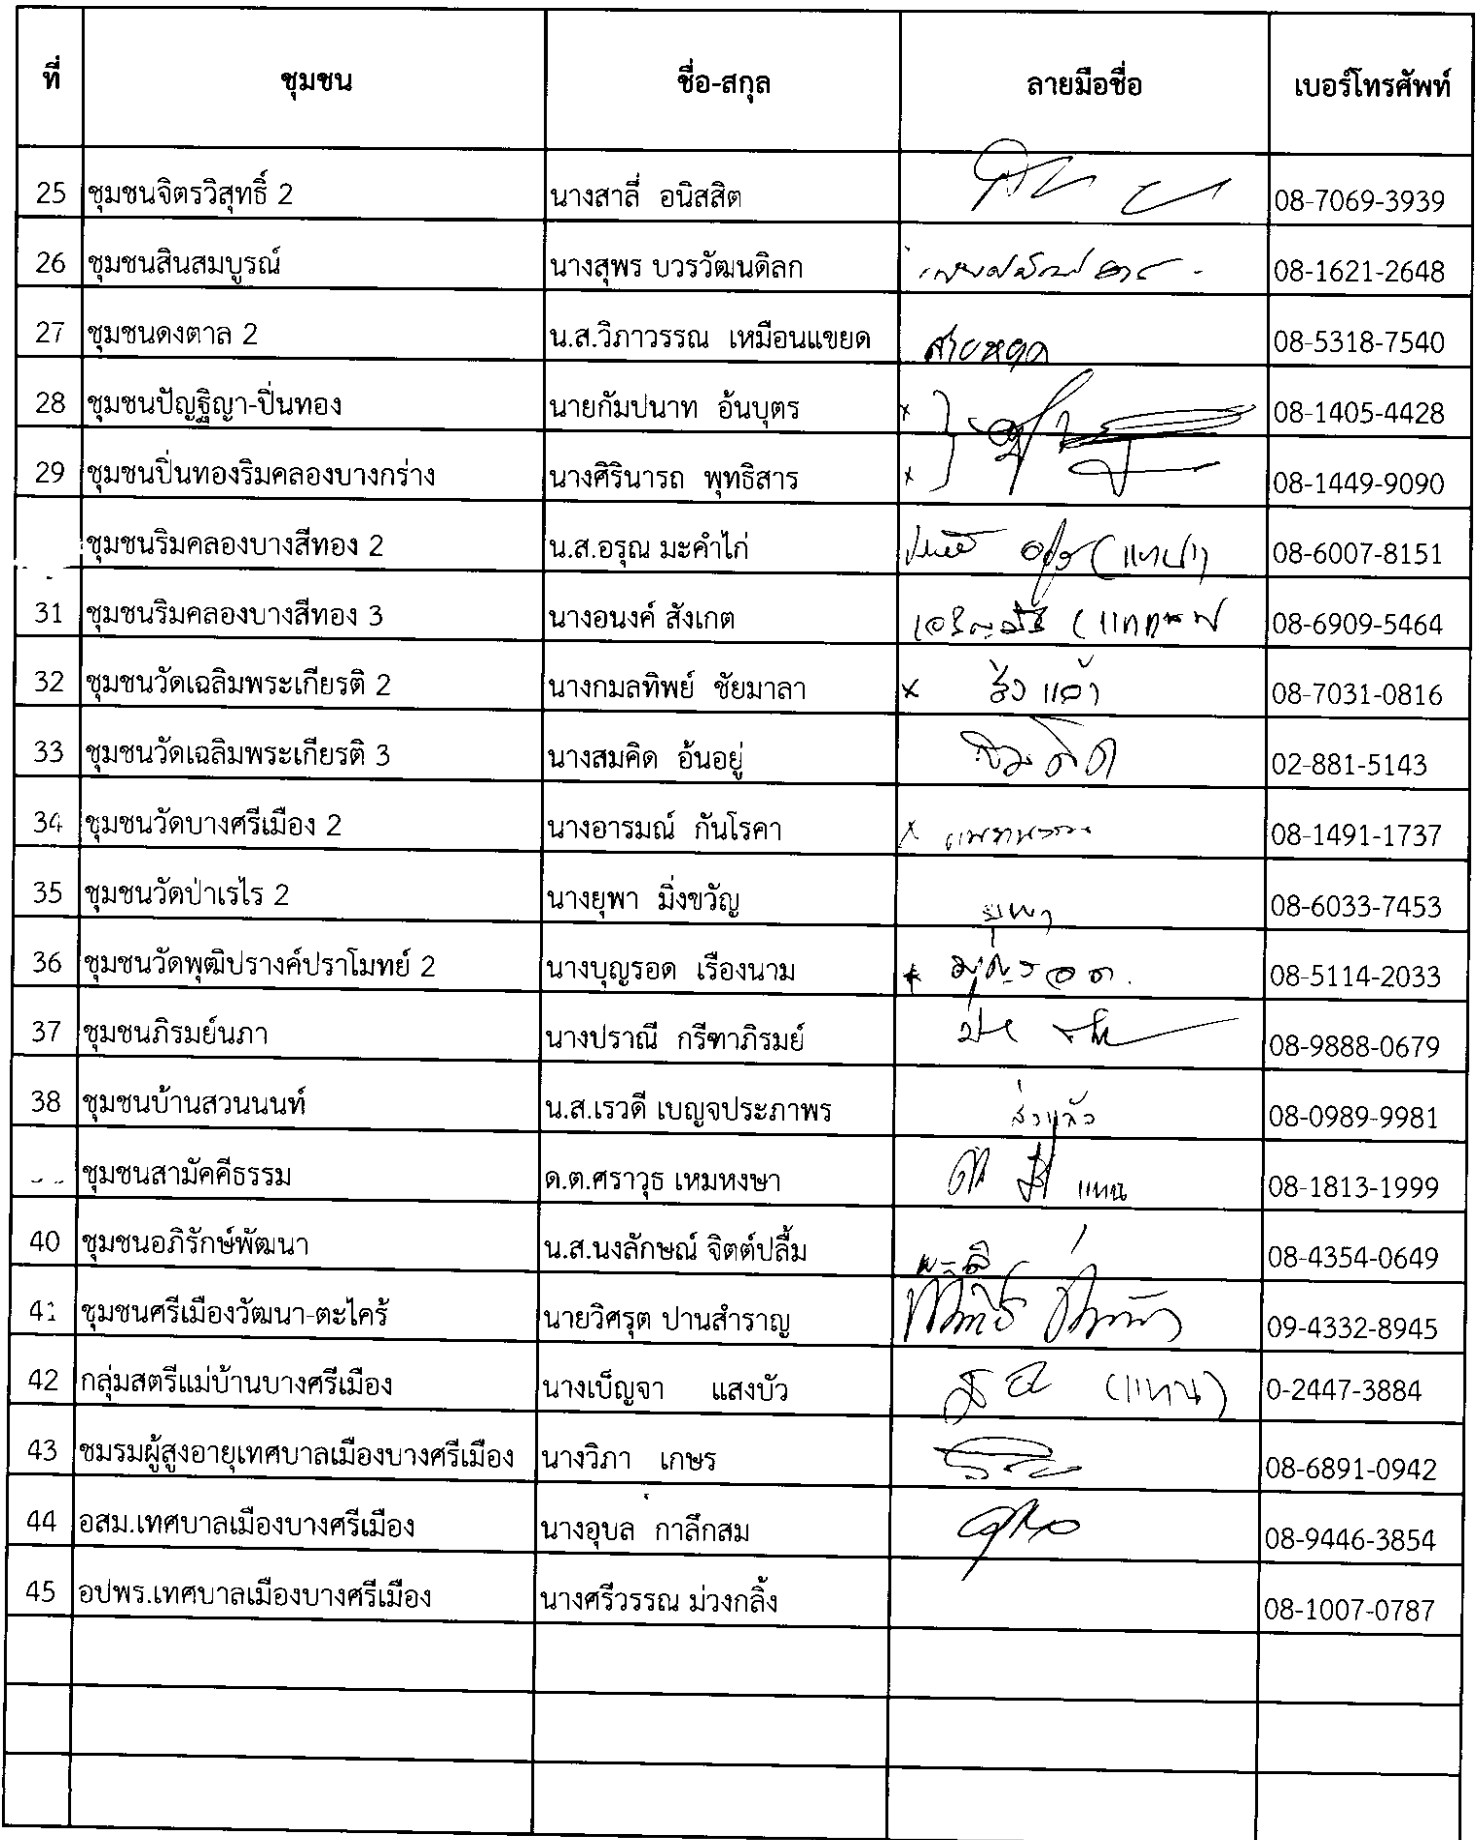 ที่ ชุมชน ชื่อ-สกุล ลายมือชื่อ เบอร์โทรศัพท์
25 ชุมชนจิตรวิสุทธิ์ 2 นางสาลี่ อนิสสิต 08-7069-3939
26 ชุมชนสินสมบูรณ์ นางสุพร บวรวัฒนดิลก 08-1621-2648
27 ชุมชนดงตาล 2 น.ส.วิภาวรรณ เหมือนแขยด สายหยุด 08-5318-7540
28 ชุมชนปัญฐิญา-ปิ่นทอง นายกัมปนาท อ้นบุตร x 08-1405-4428
29 ชุมชนปิ่นทองริมคลองบางกร่าง นางศิรินารถ พุทธิสาร x 08-1449-9090
ชุมชนริมคลองบางสีทอง 2 น.ส.อรุณ มะคำไก่ (แทน) 08-6007-8151
31 ชุมชนริมคลองบางสีทอง 3 นางอนงค์ สังเกต 08-6909-5464
32 ชุมชนวัดเฉลิมพระเกียรติ 2 นางกมลทิพย์ ชัยมาลา x ส่งแล้ว 08-7031-0816
33 ชุมชนวัดเฉลิมพระเกียรติ 3 นางสมคิด อ้นอยู่ สมคิด 02-881-5143
34 ชุมชนวัดบางศรีเมือง 2 นางอารมณ์ กันโรคา x 08-1491-1737
35 ชุมชนวัดป่าเรไร 2 นางยุพา มิ่งขวัญ ยุพา 08-6033-7453
36 ชุมชนวัดพุฒิปรางค์ปราโมทย์ 2 นางบุญรอด เรืองนาม บุญรอด 08-5114-2033
37 ชุมชนภิรมย์นภา นางปราณี กรีฑาภิรมย์ 08-9888-0679
38 ชุมชนบ้านสวนนนท์ น.ส.เรวดี เบญจประภาพร ส่งแล้ว 08-0989-9981
ชุมชนสามัคคีธรรม ด.ต.ศราวุธ เหมหงษา แทน 08-1813-1999
40 ชุมชนอภิรักษ์พัฒนา น.ส.นงลักษณ์ จิตต์ปลื้ม 08-4354-0649
41 ชุมชนศรีเมืองวัฒนา-ตะไคร้ นายวิศรุต ปานสำราญ 09-4332-8945
42 กลุ่มสตรีแม่บ้านบางศรีเมือง นางเบ็ญจา แสงบัว (แทน) 0-2447-3884
43 ชมรมผู้สูงอายุเทศบาลเมืองบางศรีเมือง นางวิภา เกษร 08-6891-0942
44 อสม.เทศบาลเมืองบางศรีเมือง นางอุบล กาลึกสม 08-9446-3854
45 อปพร.เทศบาลเมืองบางศรีเมือง นางศรีวรรณ ม่วงกลิ้ง 08-1007-0787